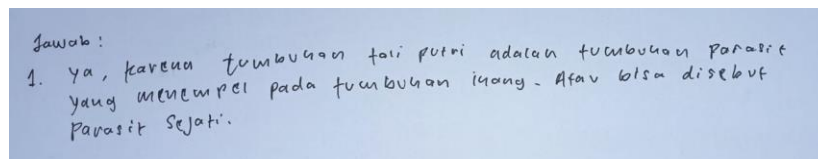 Jawab :
1. Ya, karena tumbuhan tali putri adalah tumbuhan parasit
yang menempel pada tumbuhan inang. Atau bisa disebut
Parasit Sejati.